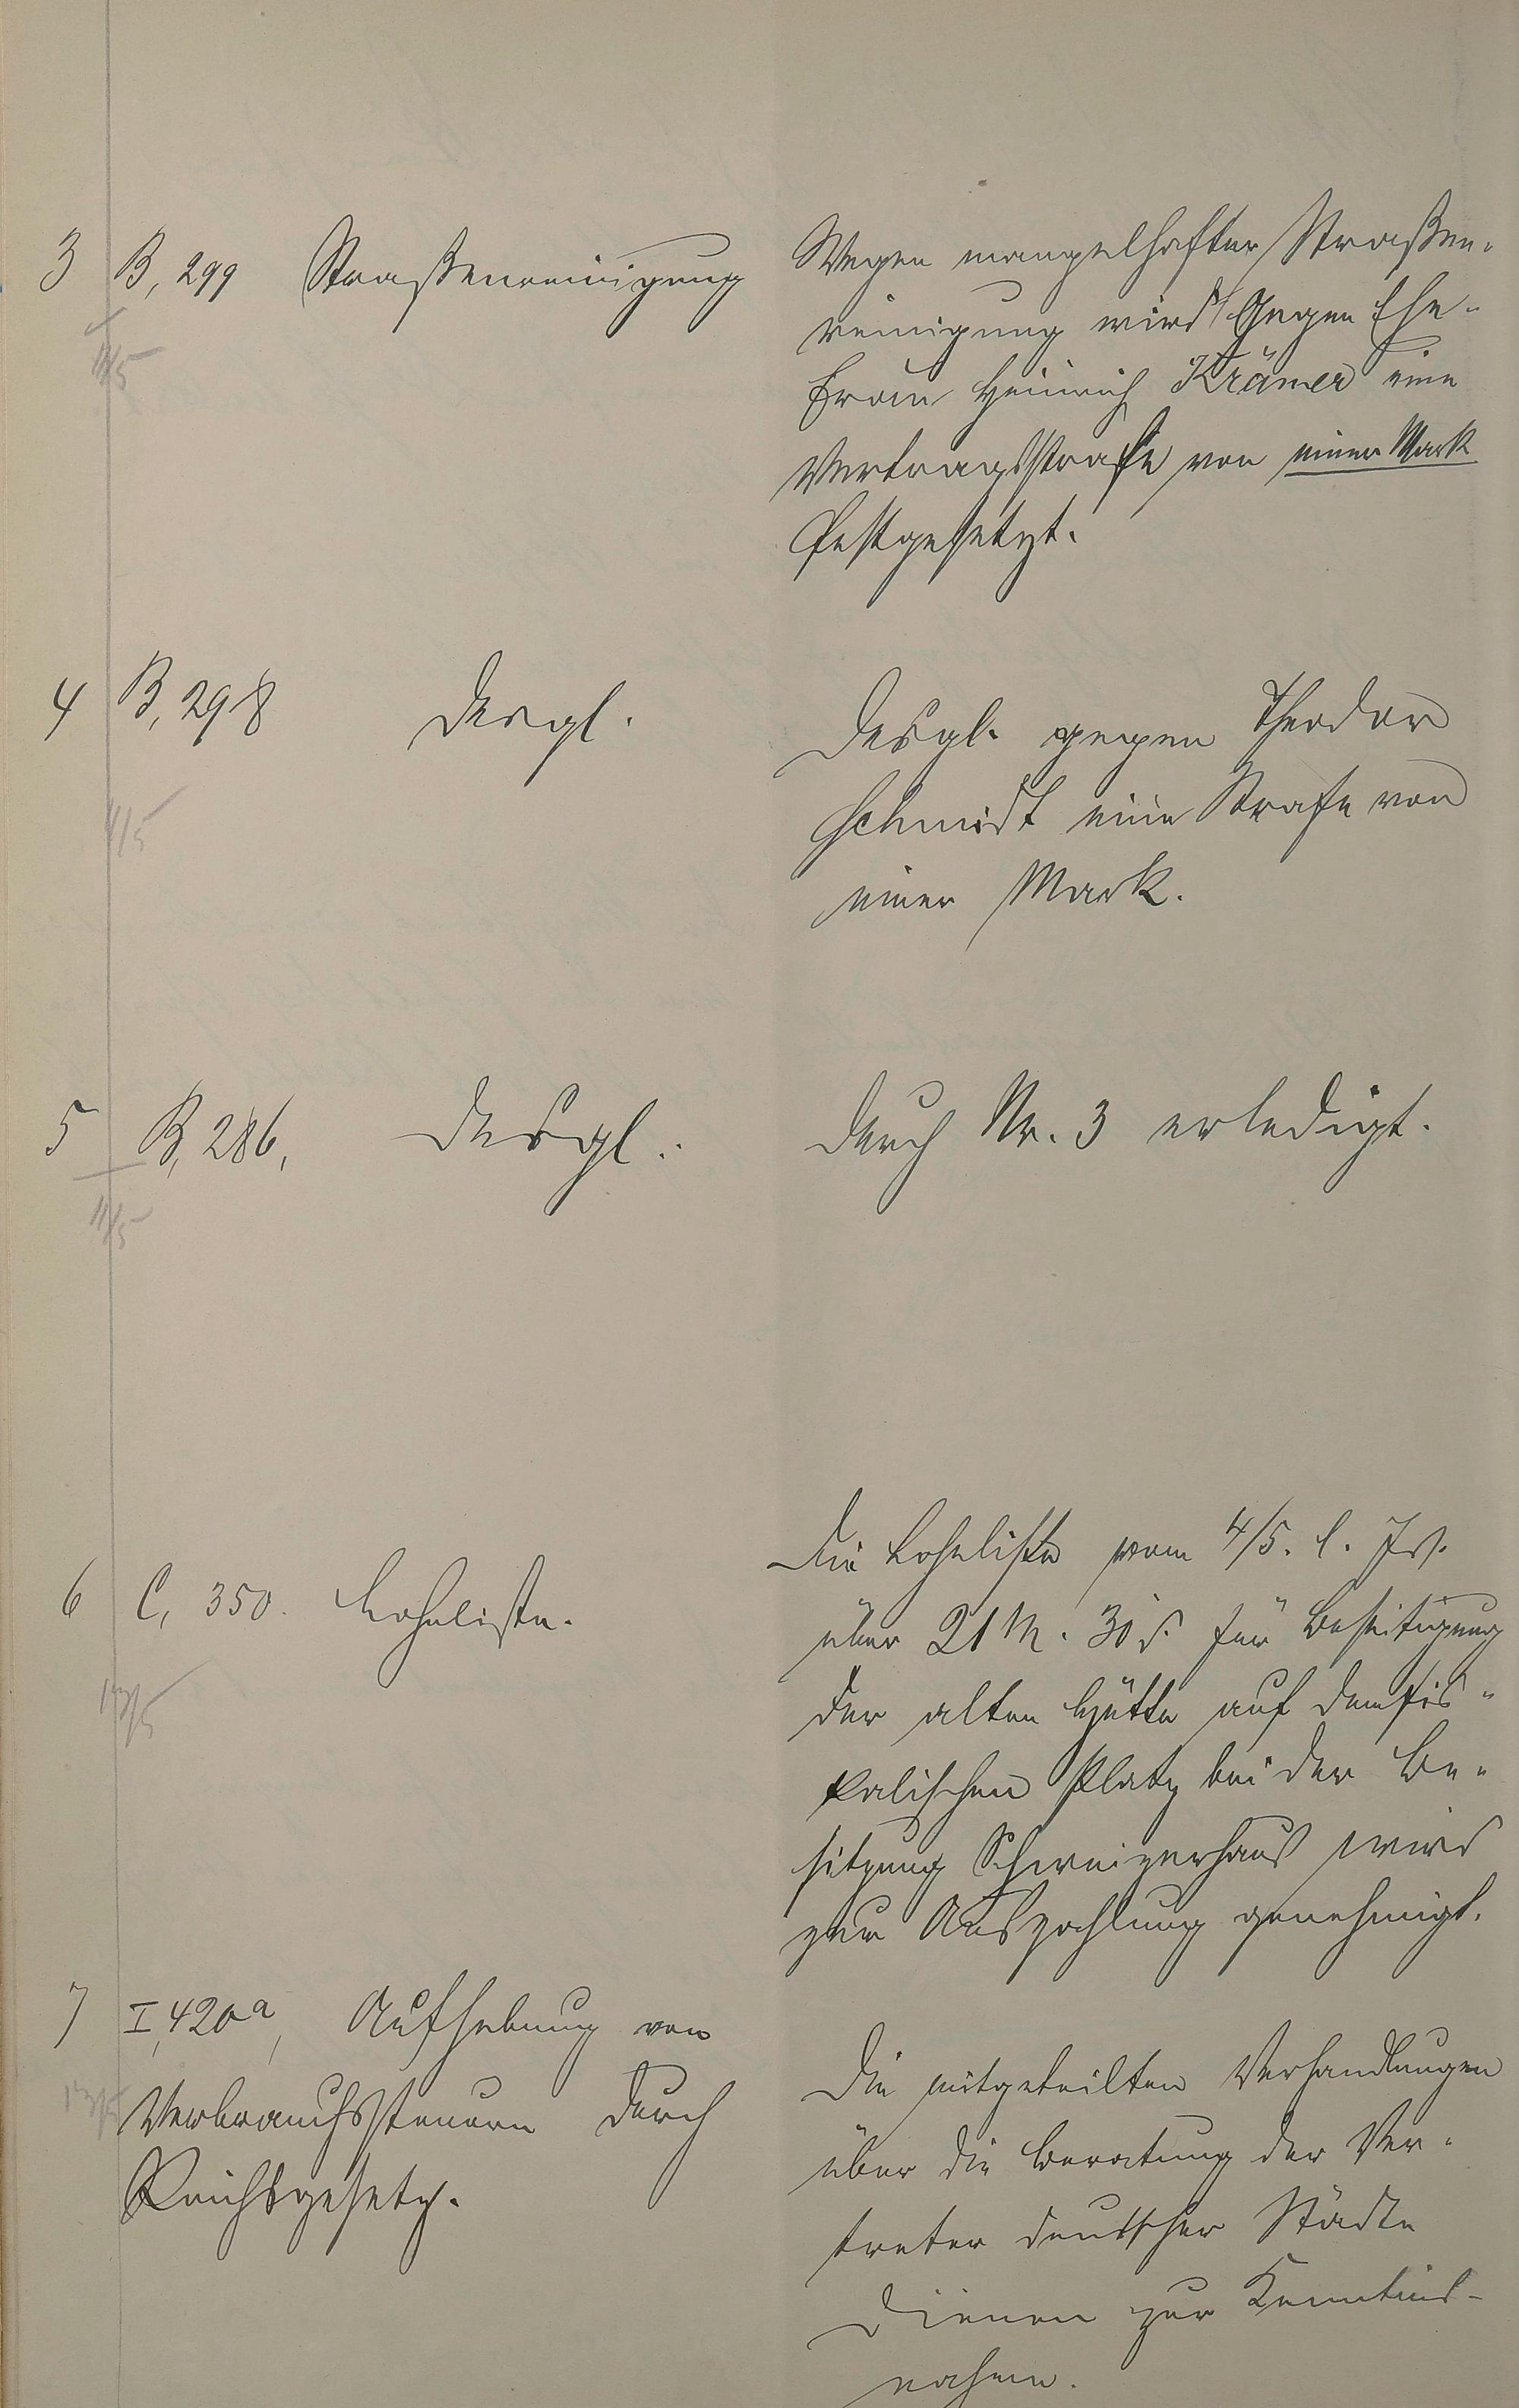 3 B, 299 Straßenreinigung
11/5
Wegen mangelhafter Straßen-
reinigung wird gegen Ehe-
frau Heinrich Krämer eine
Vertragsstrafe von einer Mark
festgesetzt.
4 B, 298 desgl.
11/5
Desgl. gegen Theodor
Schmidt eine Strafe von
einer Mark.
5 B, 286, desgl.
11/5
Durch Nr. 3 erledigt.
6 C, 350. Lohnliste.
13/5
Die Lohnliste vom 4/5. l. Js.
über 21 M. 30 d. für Beseitigung
der alten Hütte auf dem fis-
kalischen Platz bei der Be-
sitzung Schweizerhaus wird
zur Auszahlung genehmigt.
7 I, 420a, Aufhebung von
13/5
Verbrauchssteuern durch
Reichsgesetz.
Die mitgeteilten Verhandlungen
über die Beratung der Ver-
treter deutscher Städte
dienen zur Kenntnis-
nahme.